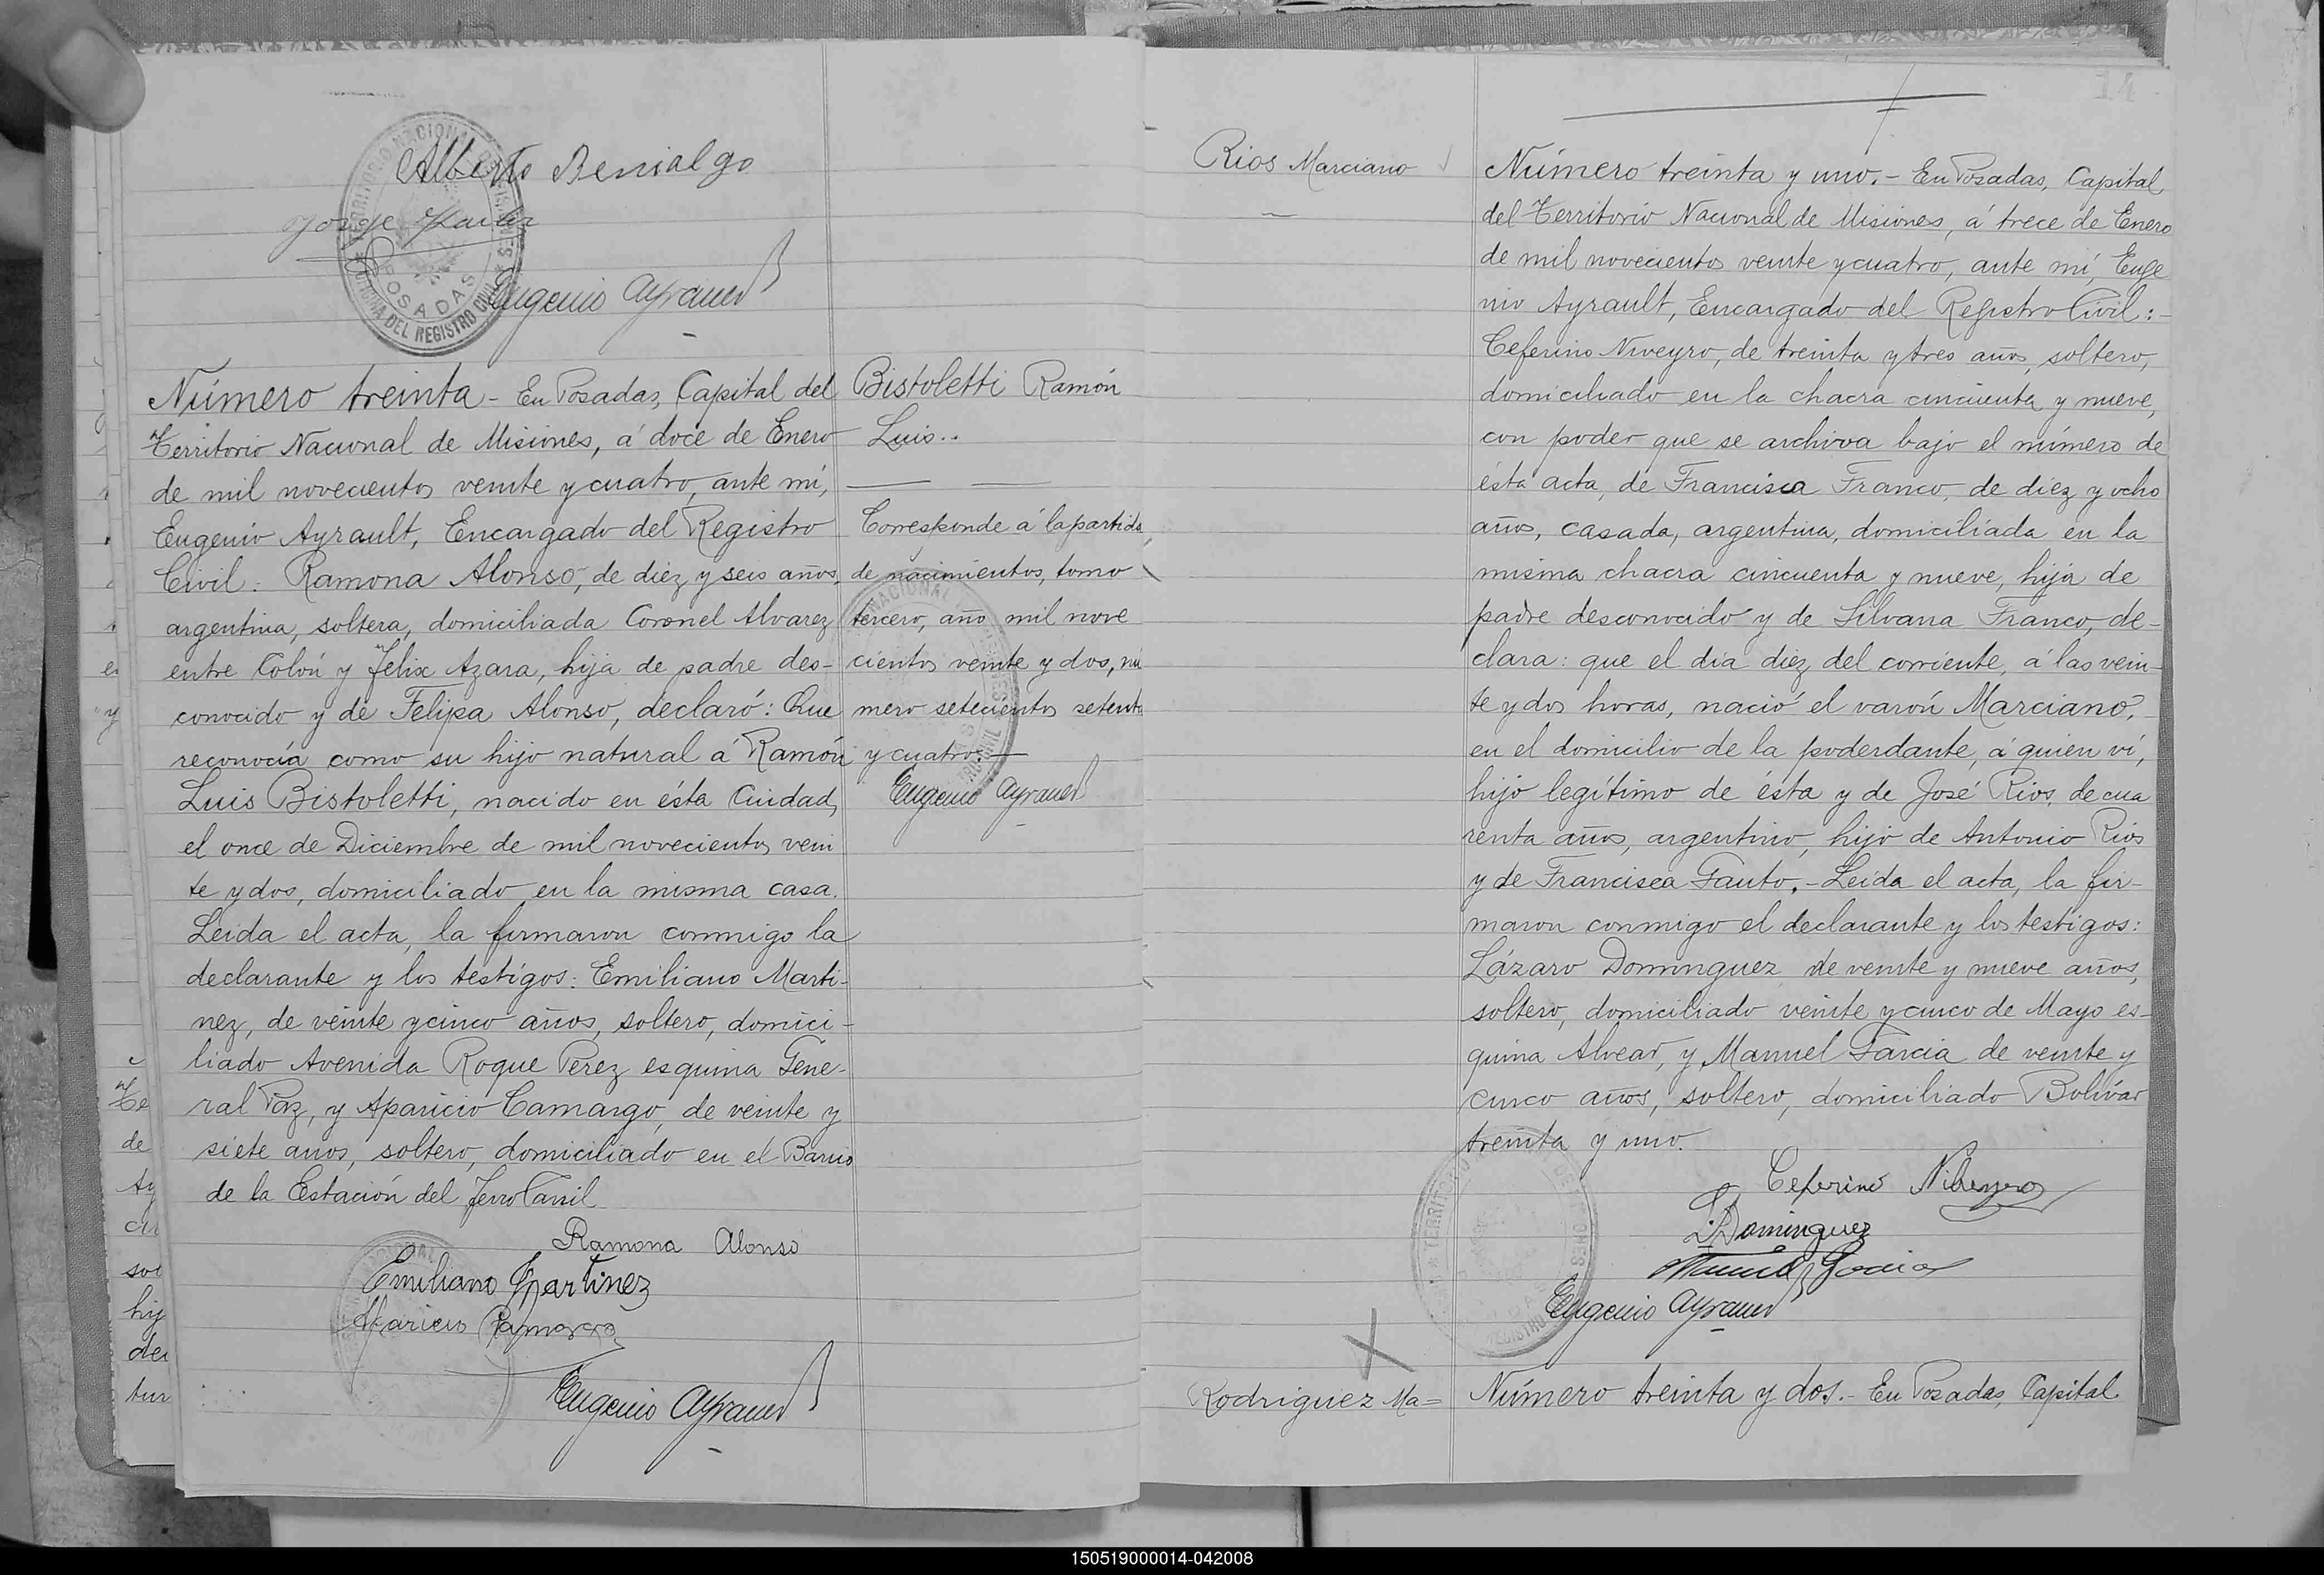 Alberto Benialgo
Jorge
Eugenio Ayrault
TERRITORIO NACIONAL DE MISIONES
OFICINA DEL REGISTRO CIVIL
POSADAS
Número treinta - En Posadas, Capital del
Territorio Nacional de Misiones, á doce de Enero
de mil novecientos veinte y cuatro, ante mí,
Eugenio Ayrault, Encargado del Registro
Civil: Ramona Alonso, de diez y seis años,
argentina, soltera, domiciliada Coronel Alvarez
entre Colón y Félix Azara, hija de padre des-
conocido y de Felipa Alonso, declaró: Que
reconocía como su hijo natural a Ramón
Luis Bistoletti, nacido en ésta Ciudad,
el once de Diciembre de mil novecientos vein
te y dos, domiciliado en la misma casa.
Leida el acta, la firmaron conmigo la
declarante y los testigos: Emiliano Marti-
nez, de veinte y cinco años, soltero, domici-
liado Avenida Roque Perez esquina Gene-
ral Paz, y Aparicio Camargo, de veinte y
siete años, soltero, domiciliado en el Barrio
de la Estación del Ferro Carril
Ramona Alonso
Emiliano Martinez
Aparicio Camargo
Eugenio Ayrault
Bistoletti Ramón
Luis..
Corresponde á la partida
de nacimientos, tomo
tercero, año mil nove
cientos veinte y dos, nú
mero setecientos setenta
y cuatro.
Eugenio Ayrault
Rios Marciano
14
Número treinta y uno. - En Posadas, Capital
del Territorio Nacional de Misiones, á trece de Enero
de mil novecientos veinte y cuatro, ante mí, Euge
nio Ayrault, Encargado del Registro Civil: -
Ceferino Niveyro, de treinta y tres años, soltero,
domiciliado en la chacra cincuenta y nueve,
con poder que se archiva bajo el número de
ésta acta, de Francisca Franco, de diez y ocho
años, casada, argentina, domiciliada en la
misma chacra cincuenta y nueve, hija de
padre desconocido y de Silvana Franco, de-
clara: que el día diez del corriente, á las vein-
te y dos horas, nació el varón Marciano,
en el domicilio de la poderdante, á quien ví,
hijo legítimo de ésta y de José Rios, de cua
renta años, argentino, hijo de Antonio Rios
y de Francisca Gauto. - Leida el acta, la fir-
maron conmigo el declarante y los testigos:
Lázaro Dominguez, de veinte y nueve años,
soltero, domiciliado veinte y cinco de Mayo es-
quina Alvear, y Manuel Garcia de veinte y
cinco años, soltero, domiciliado Bolívar
treinta y uno.
Ceferino Niveyro
L. Dominguez
Manuel Garcia
Eugenio Ayrault
Rodriguez Ma=
Número treinta y dos. - En Posadas, Capital
150519000014-042008